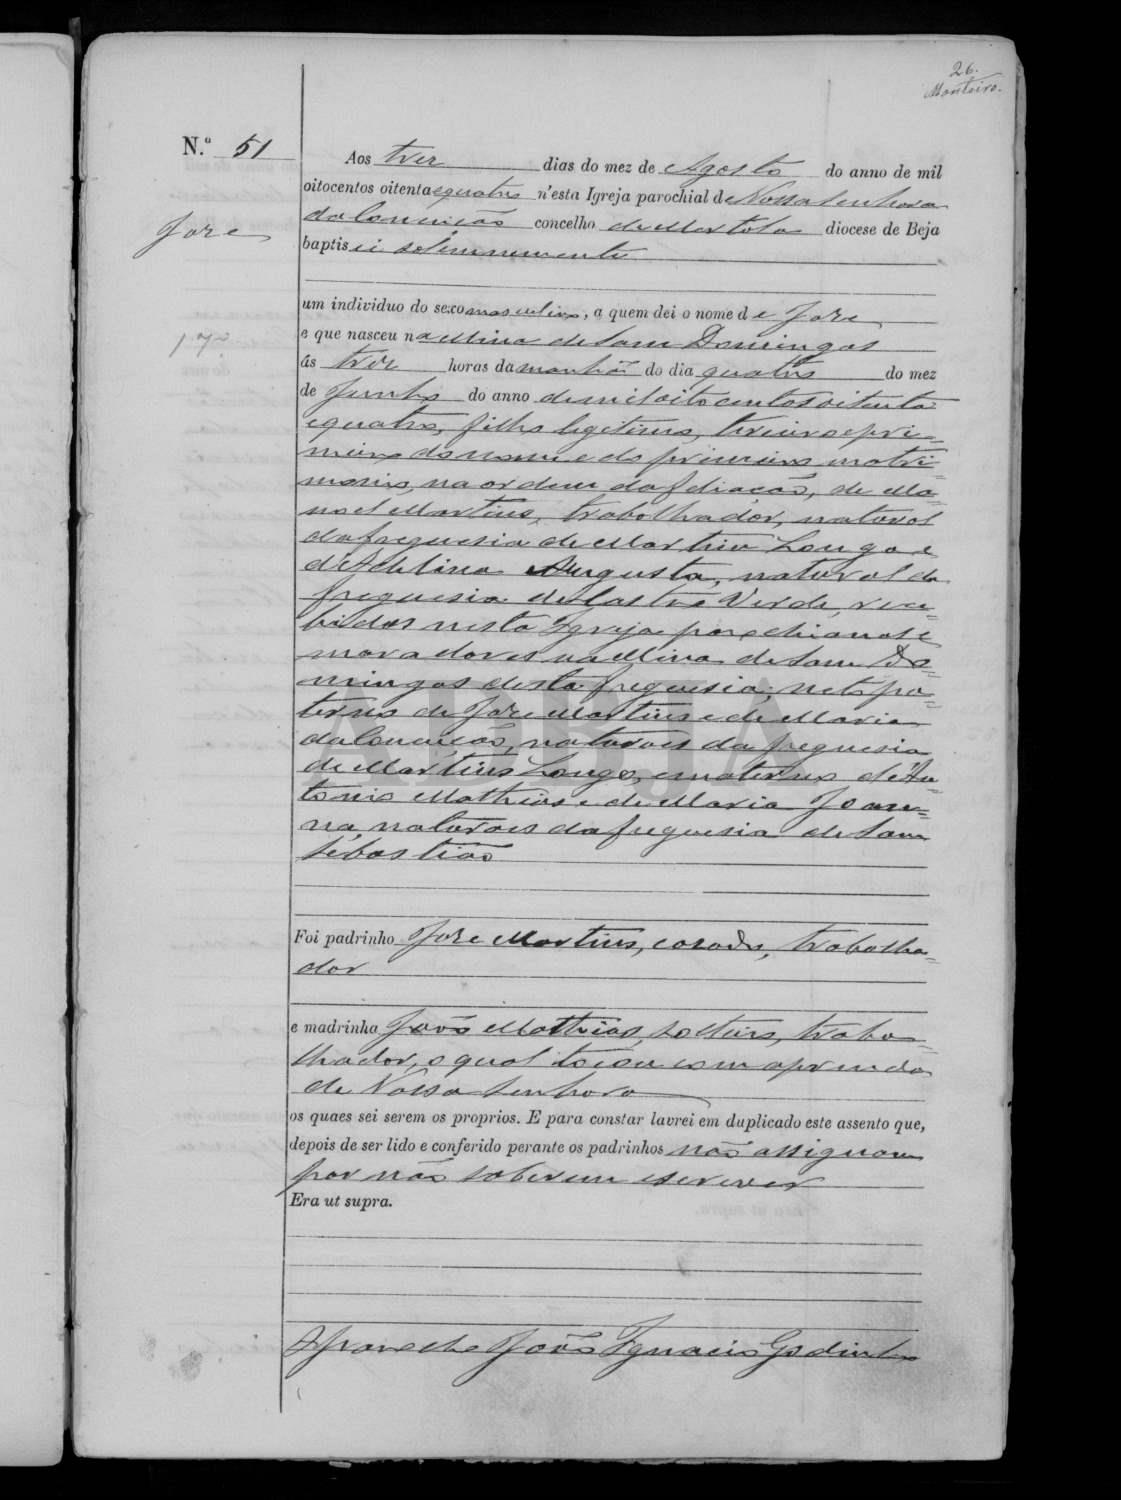 26.
Monteiro.
N.º 51
José
170
Aos tres dias do mez de Agosto do anno de mil
oitocentos oitenta e quatro n'esta Igreja parochial de Nossa Senhora
da Conceição concelho de Mertola diocese de Beja
baptisei solemnemente
um individuo do sexo masculino, a quem dei o nome de José
e que nasceu na Mina de Sam Domingos
ás tres horas da manhã do dia quatro do mez
de Junho do anno de mil oito centos oitenta
e quatro, filho legitimo, terceiro e pri=
meiro do nome e do primeiro matri=
monio, na ordem da filiação, de Ma=
noel Martins, trabalhador, natural
da freguesia de Martim Longo e
d'Adelina Augusta, natural da
freguesia de Castro Verde, rece=
bidos nesta Igreja parochial e
moradores na Mina de Sam Do=
mingos desta freguesia; neto pa=
terno de José Martins e de Maria
da Conceição, naturaes da freguesia
de Martim Longo, e materno d'An=
tonio Mathias e de Maria Joan=
na, naturaes da freguesia de Sam
Sebastião
Foi padrinho José Martins, casado, trabalha=
dor
e madrinha João Mathias, solteiro, traba=
lhador, o qual tocou com a prenda
de Nossa Senhora
os quaes sei serem os proprios. E para constar lavrei em duplicado este assento que,
depois de ser lido e conferido perante os padrinhos não assignam
por não saberem escrever
Era ut supra.
O Parocho João Ignacio Godinho
ADBJA